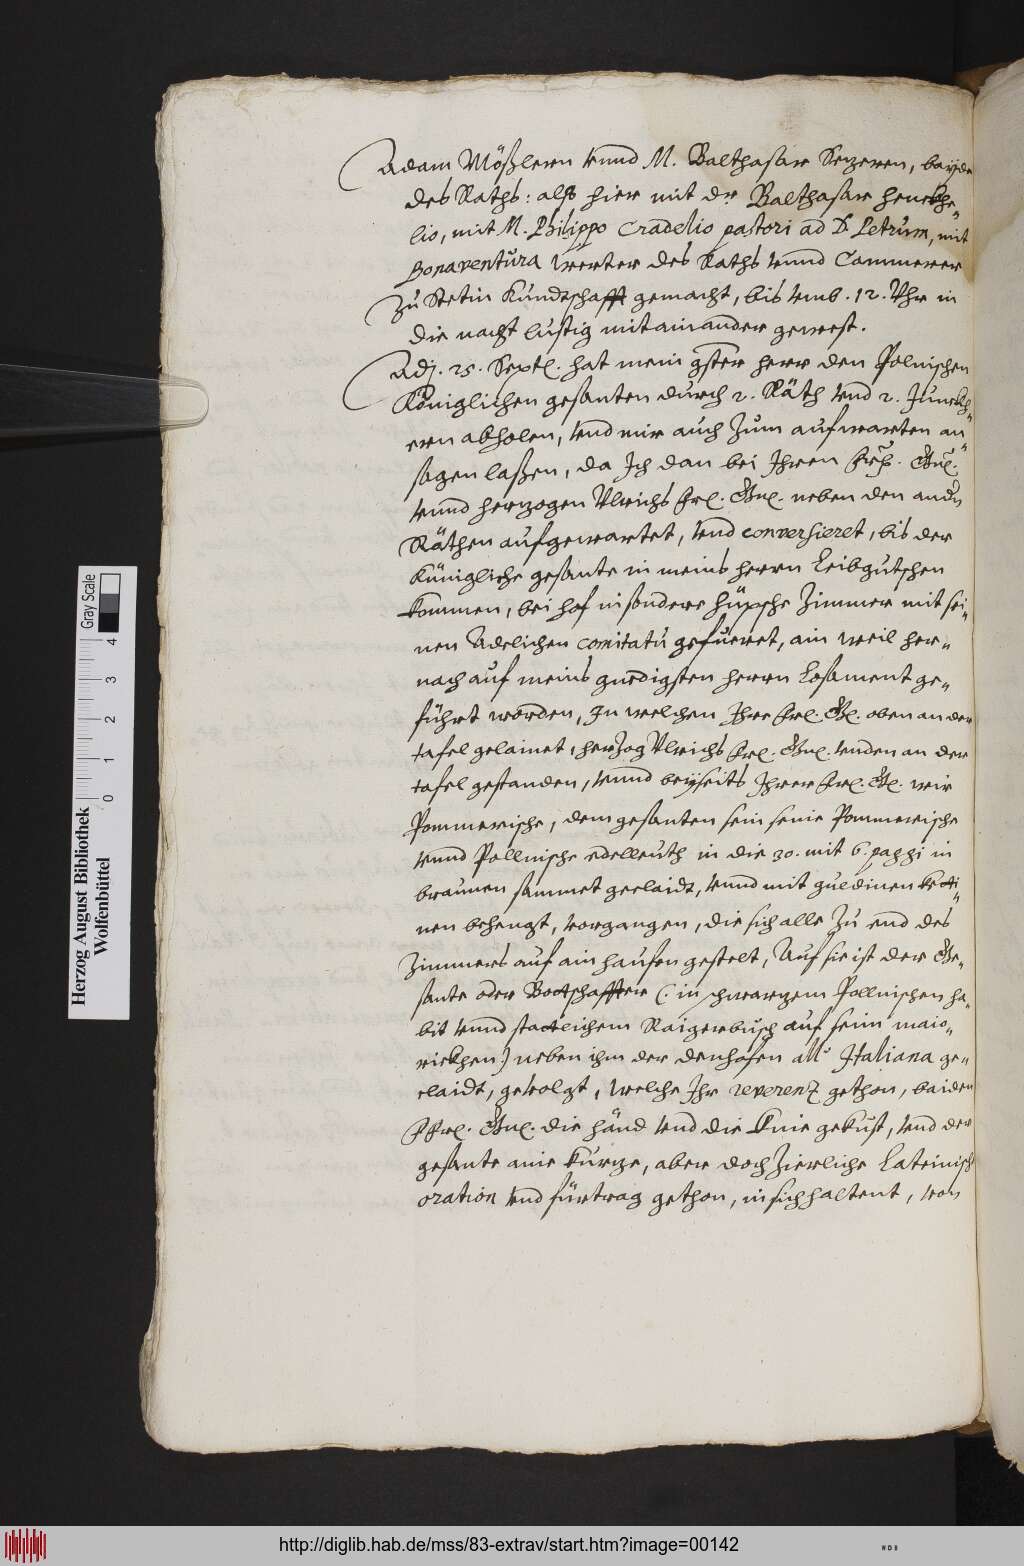 Adam Mößlern vnnd M. Balthasar Sezeren, bayde
des Raths: alß hier mit dr. Balthasar Henckhe=
lio, mit M. Philippo Cradelio pastori ad D. Petrum, mit
Bonaventura Werter des Raths vnnd Cammerer
zu Stetin Kundtschafft gemacht, bis vmb .12. Vhr in
die nacht lustig mitainander gewest.
Adj. 25. Septl. hat mein gster herr den Polnischen
Königlichen gesanten durch 2. Räth vnd 2. Junckh=
ern abholen, vnd mir auch zum aufwarten an=
sagen laßen, da Ich dan bei Ihren Frl. Gn.
vnnd herzogen Vlrichs Frl. Gn. neben den andn
Räthen aufgewartet, vnd conversieret, bis der
Künigliche gesante in meins herrn Leibgutschen
kommen, bei hof in sondere hüpsche Zimmer mit sei=
nen Adelichen comitatu gefueret, ain weil her=
nach auf meins gnedigsten herrn Losament ge=
führt worden, In welchen Ihre Frl. G. oben an der
tafel gelainet, herzog Vlrichs Frl. Gn. vnden an der
tafel gestanden, vnnd beyseits Ihrer Frl. G. wir
Pommerische, dem gesanten sein seine Pommerische
vnnd Pollnische edelleuth in die 30. mit 6. paggi in
braunen sammet geclaidt, vnnd mit guldinen ketti=
nen behengt, vorgangen, die sich alle zu end des
Zimmers auf ain haufen gestelt, Auf sie ist der Ge=
sante oder Bottschaffter (. in schwarzem Pollnischen ha=
bit vnnd stattlichem Raigerbusch auf seim maio=
rickhen.) neben ihm der denhofen all' Italiana ge=
claidt, gevolgt, welche Ihr reverenz gethon, baiden
FFrl. Gn. die händ vnd die Knie gekust, vnd der
gesante aine kurze, aber doch zierliche Lateinisch
oration vnd fürtrag gethon, in sich haltent, von
Herzog August Bibliothek
Wolfenbüttel
Gray Scale
0 1 2 3 4
http://diglib.hab.de/mss/83-extrav/start.htm?image=00142